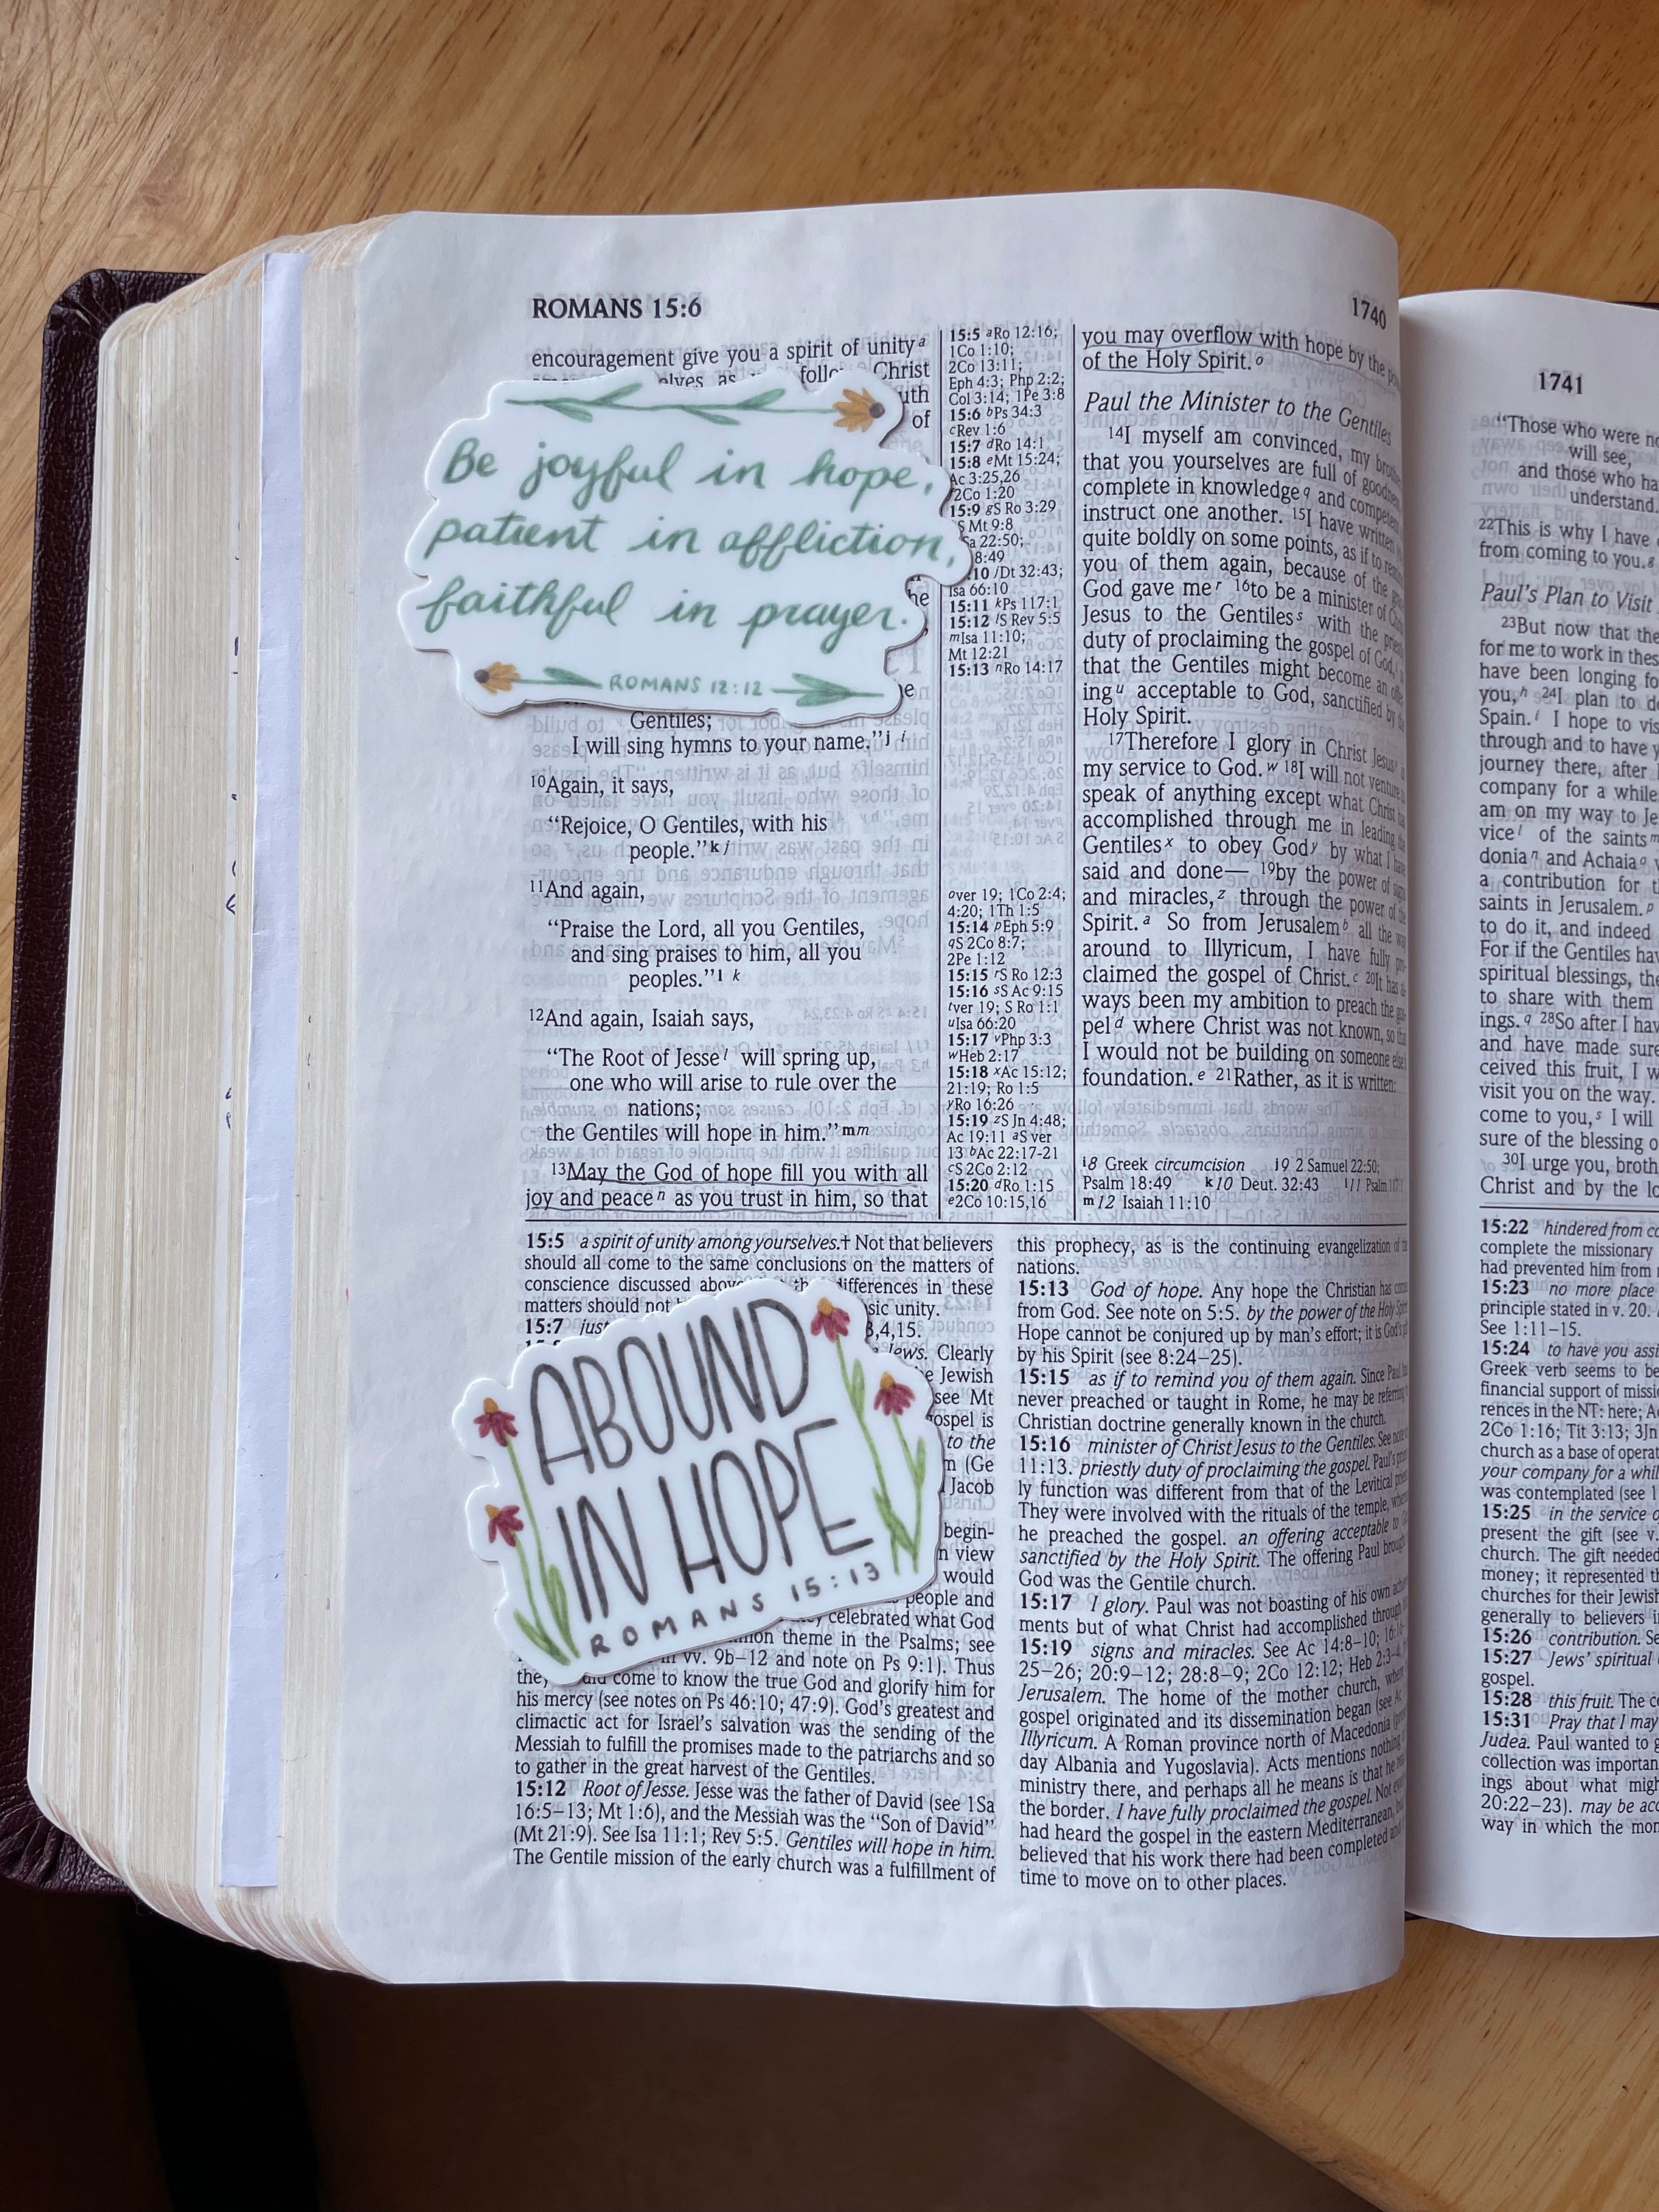 ROMANS 15:6
1740
encouragement give you a spirit of unity a
as Christ
of
Be joyful in hope,
patient in affliction,
faithful in prayer.
ROMANS 12:12
Gentiles;
I will sing hymns to your name."j i
10Again, it says,
"Rejoice, O Gentiles, with his
people."k j
11And again,
"Praise the Lord, all you Gentiles,
and sing praises to him, all you
peoples."l k
12And again, Isaiah says,
"The Root of Jesse l will spring up,
one who will arise to rule over the
nations;
the Gentiles will hope in him."m m
13May the God of hope fill you with all
joy and peace n as you trust in him, so that
15:5 aRo 12:16;
1Co 1:10;
2Co 13:11;
Eph 4:3; Php 2:2;
Col 3:14; 1Pe 3:8
15:6 bPs 34:3
cRev 1:6
15:7 dRo 14:1
15:8 eMt 15:24;
Ac 3:25,26
2Co 1:20
15:9 gS Ro 3:29
S Mt 9:8
22:50;
8:49
/Dt 32:43;
Isa 66:10
15:11 kPs 117:1
15:12 lS Rev 5:5
mIsa 11:10;
Mt 12:21
15:13 nRo 14:17
over 19; 1Co 2:4;
4:20; 1Th 1:5
15:14 pEph 5:9
qS 2Co 8:7;
2Pe 1:12
15:15 rS Ro 12:3
15:16 sS Ac 9:15
tver 19; S Ro 1:1
uIsa 66:20
15:17 vPhp 3:3
wHeb 2:17
15:18 xAc 15:12;
21:19; Ro 1:5
yRo 16:26
15:19 zS Jn 4:48;
Ac 19:11 aS ver
13 bAc 22:17-21
cS 2Co 2:12
15:20 dRo 1:15
e2Co 10:15,16
you may overflow with hope by the
of the Holy Spirit. o
Paul the Minister to the Gentiles
14I myself am convinced, my
that you yourselves are full of
complete in knowledge q and
instruct one another. 15I have written
quite boldly on some points, as if to
you of them again, because of the
God gave me r 16to be a minister of
Jesus to the Gentiles s with the
duty of proclaiming the gospel of God, t
that the Gentiles might become an
ing u acceptable to God, sanctified by
Holy Spirit.
17Therefore I glory in Christ Jesus
my service to God. w 18I will not venture
speak of anything except what Christ
accomplished through me in leading
Gentiles x to obey God y by what I
said and done— 19by the power of
and miracles, z through the power of
Spirit. a So from Jerusalem b all the
around to Illyricum, I have fully
claimed the gospel of Christ. c 20It has
ways been my ambition to preach the
pel d where Christ was not known, so
I would not be building on someone
foundation. e 21Rather, as it is written:
i8 Greek circumcision j9 2 Samuel 22:50;
Psalm 18:49 k10 Deut. 32:43 l11 Psalm
m12 Isaiah 11:10
15:5 a spirit of unity among yourselves.† Not that believers
should all come to the same conclusions on the matters of
conscience discussed differences in these
matters should not unity.
15:7
Jews. Clearly
Jewish
see Mt
gospel is
to the
(Ge
Jacob
begin-
view
would
people and
celebrated what God
theme in the Psalms; see
vv. 9b–12 and note on Ps 9:1). Thus
come to know the true God and glorify him for
his mercy (see notes on Ps 46:10; 47:9). God's greatest and
climactic act for Israel's salvation was the sending of the
Messiah to fulfill the promises made to the patriarchs and so
to gather in the great harvest of the Gentiles.
15:12 Root of Jesse. Jesse was the father of David (see 1Sa
16:5–13; Mt 1:6), and the Messiah was the "Son of David"
(Mt 21:9). See Isa 11:1; Rev 5:5. Gentiles will hope in him.
The Gentile mission of the early church was a fulfillment of
ABOUND
IN HOPE
ROMANS 15:13
this prophecy, as is the continuing evangelization of
nations.
15:13 God of hope. Any hope the Christian has
from God. See note on 5:5. by the power of the Holy
Hope cannot be conjured up by man's effort; it is God's
by his Spirit (see 8:24–25).
15:15 as if to remind you of them again. Since Paul
never preached or taught in Rome, he may be referring
Christian doctrine generally known in the church.
15:16 minister of Christ Jesus to the Gentiles. See
11:13. priestly duty of proclaiming the gospel. Paul's
ly function was different from that of the Levitical
They were involved with the rituals of the temple,
he preached the gospel. an offering acceptable to
sanctified by the Holy Spirit. The offering Paul
God was the Gentile church.
15:17 I glory. Paul was not boasting of his own
ments but of what Christ had accomplished through
15:19 signs and miracles. See Ac 14:8–10;
25–26; 20:9–12; 28:8–9; 2Co 12:12; Heb
Jerusalem. The home of the mother church,
gospel originated and its dissemination began (see
Illyricum. A Roman province north of Macedonia
day Albania and Yugoslavia). Acts mentions
ministry there, and perhaps all he means is that he
the border. I have fully proclaimed the gospel. Not
had heard the gospel in the eastern Mediterranean,
believed that his work there had been completed
time to move on to other places.
1741
"Those who were
will see,
and those who
understand.
22This is why I have
from coming to you. g
Paul's Plan to Visit
23But now that the
for me to work in
have been longing
you, h 24I plan to
Spain. i I hope to
through and to have
journey there, after
company for a while
am on my way to
vice l of the saints m
donia n and Achaia o
a contribution for
saints in Jerusalem. p
to do it, and indeed
For if the Gentiles
spiritual blessings,
to share with them
ings. q 28So after I
and have made sure
ceived this fruit, I
visit you on the way.
come to you, s I will
sure of the blessing
30I urge you,
Christ and by the
15:22 hindered from
complete the missionary
had prevented him from
15:23 no more place
principle stated in v. 20.
See 1:11–15.
15:24 to have you
Greek verb seems to
financial support of
rences in the NT: here;
2Co 1:16; Tit 3:13;
church as a base of
your company for a
was contemplated (see
15:25 in the service
present the gift (see v.
church. The gift needed
money; it represented
churches for their Jewish
generally to believers
15:26 contribution.
15:27 Jews' spiritual
gospel.
15:28 this fruit. The
15:31 Pray that I may
Judea. Paul wanted to
collection was important
ings about what
20:22–23). may be
way in which the